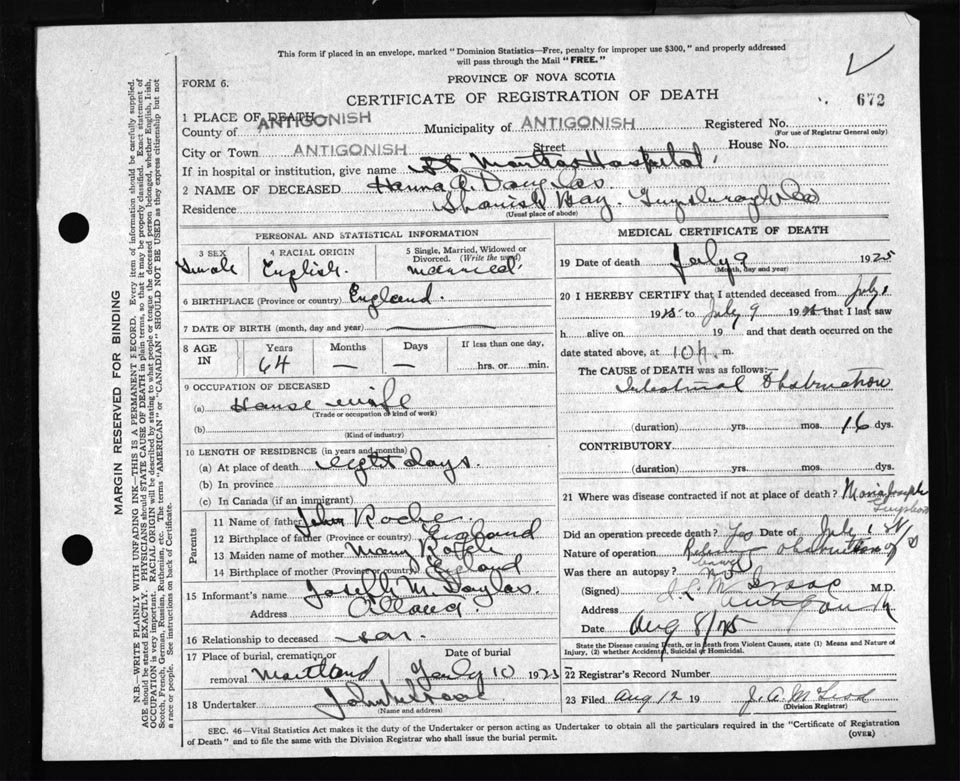 This form if placed in an envelope, marked "Dominion Statistics—Free, penalty for improper use $300," and properly addressed
will pass through the Mail "FREE."
PROVINCE OF NOVA SCOTIA
FORM 6.
CERTIFICATE OF REGISTRATION OF DEATH
672
1 PLACE OF DEATH—
County of ANTIGONISH Municipality of ANTIGONISH Registered No.
(For use of Registrar General only)
City or Town ANTIGONISH Street House No.
If in hospital or institution, give name St Hospital
2 NAME OF DECEASED
Residence Bay.
(Usual place of abode)
PERSONAL AND STATISTICAL INFORMATION
3 SEX 4 RACIAL ORIGIN 5 Single, Married, Widowed or
Divorced. (Write the word)
English. married
6 BIRTHPLACE (Province or country) England.
7 DATE OF BIRTH (month, day and year)
8 AGE IN Years Months Days If less than one day,
64 — — hrs. or min.
9 OCCUPATION OF DECEASED
(a) House wife
(Trade or occupation or kind of work)
(b)
(Kind of industry)
10 LENGTH OF RESIDENCE (in years and months)
(a) At place of death eight days.
(b) In province
(c) In Canada (if an immigrant)
Parents
11 Name of father John Roche
12 Birthplace of father (Province or country) England
13 Maiden name of mother Mary
14 Birthplace of mother (Province or country) England
15 Informant's name Joseph M.
Address
16 Relationship to deceased son.
17 Place of burial, cremation or removal Date of burial
July 10 1925
18 Undertaker John
(Name and address)
MEDICAL CERTIFICATE OF DEATH
19 Date of death July 9 1925
(Month, day and year)
20 I HEREBY CERTIFY that I attended deceased from July 1
1925 to July 9 1925 that I last saw
h alive on 19 and that death occurred on
date stated above, at 10 m.
The CAUSE of DEATH was as follows:—
Intestinal Obstruction
(duration) yrs. mos. 16 dys.
CONTRIBUTORY
(duration) yrs. mos. dys.
21 Where was disease contracted if not at place of death?
Did an operation precede death? Yes Date of July 1
Nature of operation obstruction
Was there an autopsy?
(Signed) M.D.
Address
Date Aug 8/25
State the Disease causing Death, or in death from Violent Causes, state (1) Means and Nature of
Injury, (2) whether Accidental, Suicidal or Homicidal.
22 Registrar's Record Number
23 Filed Aug 12 19 J. A. McLeod
(Division Registrar)
SEC. 46—Vital Statistics Act makes it the duty of the Undertaker or person acting as Undertaker to obtain all the particulars required in the "Certificate of Registration
of Death" and to file the same with the Division Registrar who shall issue the burial permit.
(OVER)
MARGIN RESERVED FOR BINDING
N.B.—WRITE PLAINLY WITH UNFADING INK—THIS IS A PERMANENT RECORD. Every item of information should be carefully supplied.
AGE should be stated EXACTLY. PHYSICIANS should STATE CAUSE OF DEATH in plain terms, so that it may be properly classified. Exact statement of
OCCUPATION is very important. RACIAL ORIGIN will be described by stating to what people or tongue the deceased person belonged, whether English, Irish,
Scotch, French, German, Russian, Ruthenian, etc. The terms "AMERICAN" or "CANADIAN" SHOULD NOT BE USED as they express citizenship but not
a race or people. See instructions on back of Certificate.